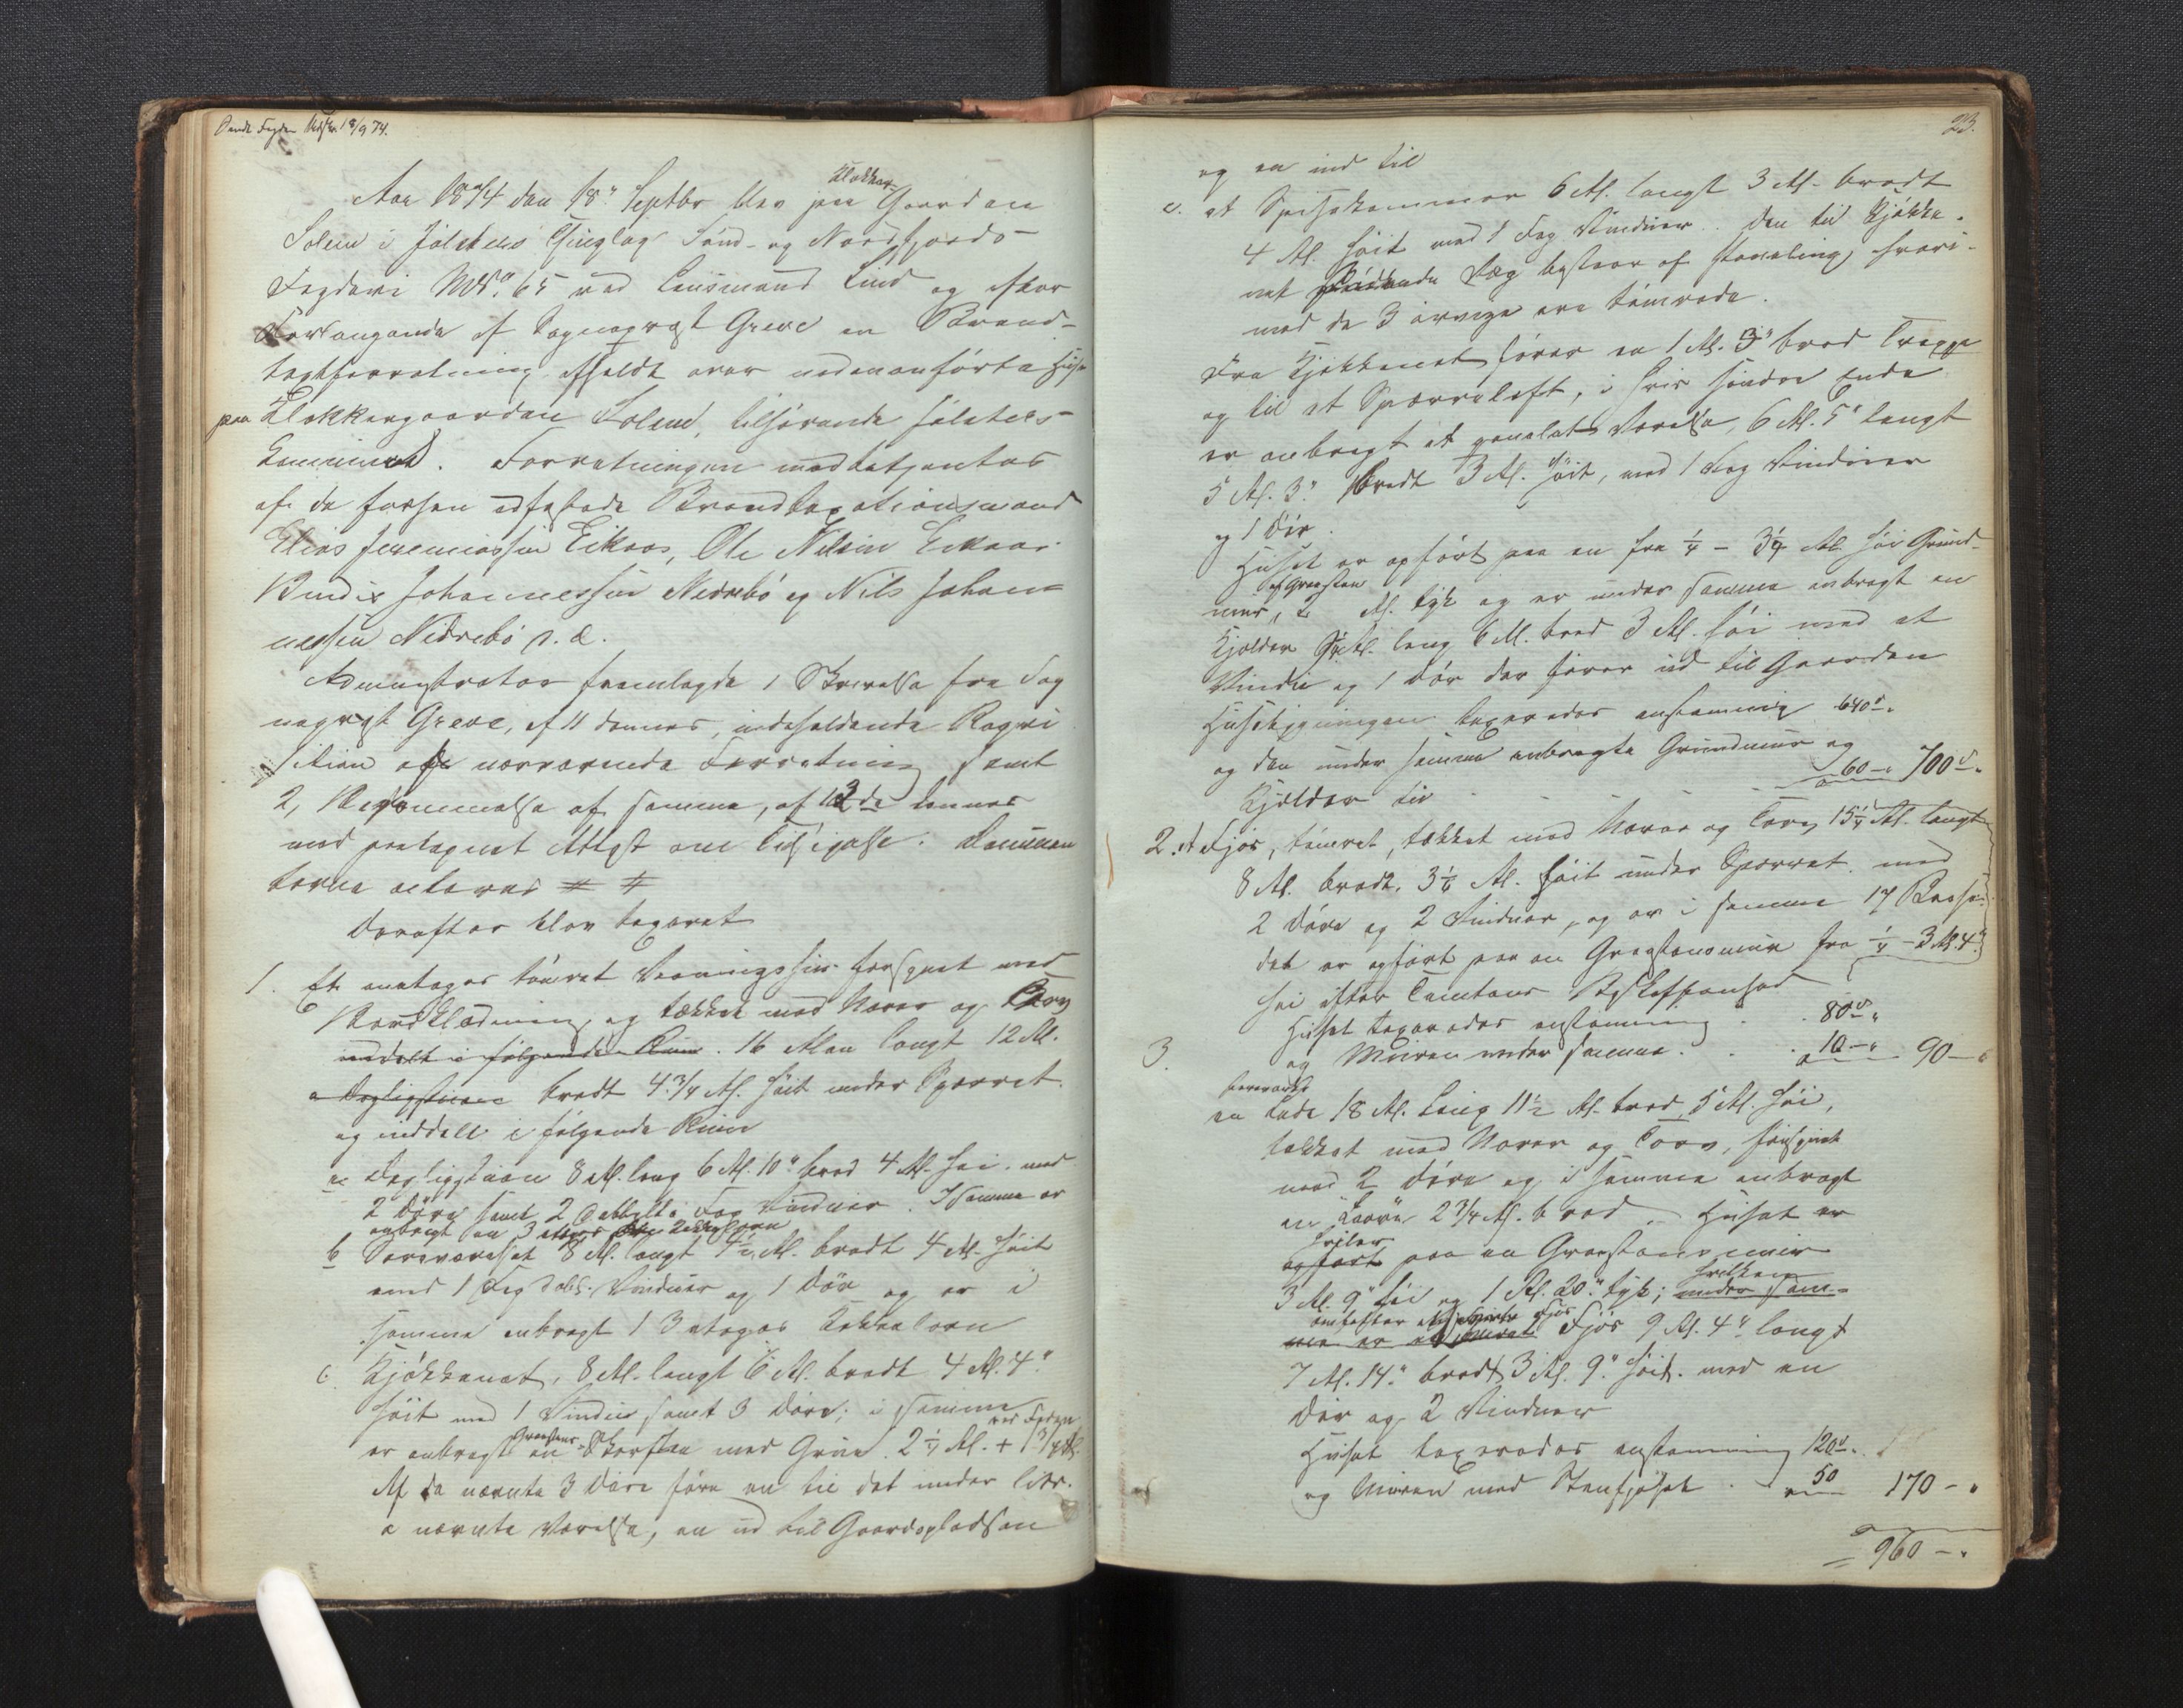 Sendt Fogden Udskr. 18/9 74.
Aar 1874 den 18de Septbr blev paa Klokker-Gaarden
Solem i Jølsters Thinglag Sønd- og Nordfjords
Fogderi MN° 65 ved Lensmand Lind og efter
Forlangende af Sogneprest Greve en Brand-
taxtforretning afholdt over nedenanførte Huse
paa Klokkergaarden Solem, tilhørende Jølsters
Kommune. Forretningen medbetjentes
af de forhen edfæstede Brandtaxationsmænd
Elias Jeremiassen Eikaas, Ole Nilsen Eikaas
Johannessen Nedrebø og Nils Johan-
nessen Nedrebø s. æ.
Administrator fremlagde 1 Skrivelse fra Sog
neprest Greve, af 11 dennes, indeholdende Reqvi
sition af nærværende Forretning samt
2, Berammelse af samme, af 12de dennes
med paategnet Attest om Tilsigelse. Dokumen
terne acteres # #
Derefter blev taxeret
1. Et enetages tømret Vaaningshus forsynet med
Bordklædning og tækket med Næver og Torv
inddelt i følgende Rum. 16 Alen langt 12 Al.
a Dagligstuen bredt 4 3/4 Al. høit under Sperret
og inddelt i følgende Rum
a Dagligstuen 8 Al. lang 6 Al. 10" bred 4 Al. høi med
2 Døre samt 2 dobbelte Fag Vinduer. I samme er
anbragt en 3 etages Kakkelovn
b Soveværelset 8 Al. langt 4 1/2 Al. bredt 4 Al. høit
med 1 Fag dobb. Vinduer og 1 Dør og er i
samme anbragt 1 3 etages Kakkelovn
c. Kjøkkenet, 8 Al. langt 6 Al. bredt 4 Al. 4"
høit med 1 Vindu samt 3 Døre; i samme
er anbragt en Graastens Skorsten med Grue 2 1/4 Al. + 1 3/4 Al.
Af de nævnte 3 Døre føre en til det under litr.
a nævnte Værelse, en ud til Gaardspladsen
23.
og en ind til
d. et Spisekammer 6 Al. langt 3 Al. bredt
4 Al. høit med 1 Fag Vinduer. Den til Kjøkke-
net stødende Væg bestaar af Paneling, hvori-
mod de 3 øvrige ere tømrede.
Fra Kjøkkenet fører en 1 Al. 3" bred Trappe
op til et Sperreloft, i hvis søndre Ende
er anbragt et panelet Værelse, 6 Al. 5" langt
5 Al. 3" bredt 3 Al. høit, med 1 Fag Vinduer
og 1 Dør.
Huset er opført paa en fra 1/4 - 3 1/4 Al. høi Grund-
mur, af Graasten 2 Al. tyk og er under samme anbragt en
Kjelder Al. lang 6 Al. bred 3 Al. høi med et
Vindu og 1 Dør der fører ud til Gaarden
Husebygningen taxeredes enstemmig 640 -"
og den under samme anbragte Grundmur og
Kjelder til 60 -" 700 -"
2. et Fjøs, tømret, tækket med Næver og Torv, 15 1/4 Al. langt
8 Al. bredt, 3 1/4 Al. høit under Sperret med
2 Døre og 2 Vinduer, og er i samme 17 Baase.
det er opført paa en Graastensmur fra 1/4 - 3 Al. 4"
høi efter Tomtens Beskaffenhed
Huset taxeredes enstemmig 80 -"
og Muren under samme 10 -" 90 -"
3.
en Lade 18 Al. lang 11 1/2 Al. bred 5 Al. høi,
tækket med Næver og Torv, forsynet
med 2 Døre og i samme anbragt
en Laave 2 3/4 Al. bred. Huset er
opført hviler paa en Graastensmur
3 Al. 9" høi og 1 Al. 20" tyk; under sam- hvilken
me er et omfatter Fjøs 9 Al. 4" langt
7 Al. 14" bredt 3 Al. 9" høit med en
Dør og 2 Vinduer
Huset taxeredes enstemmig 120 -"
og Muren med Stenfjøset 50 170 -"
= 960 -"